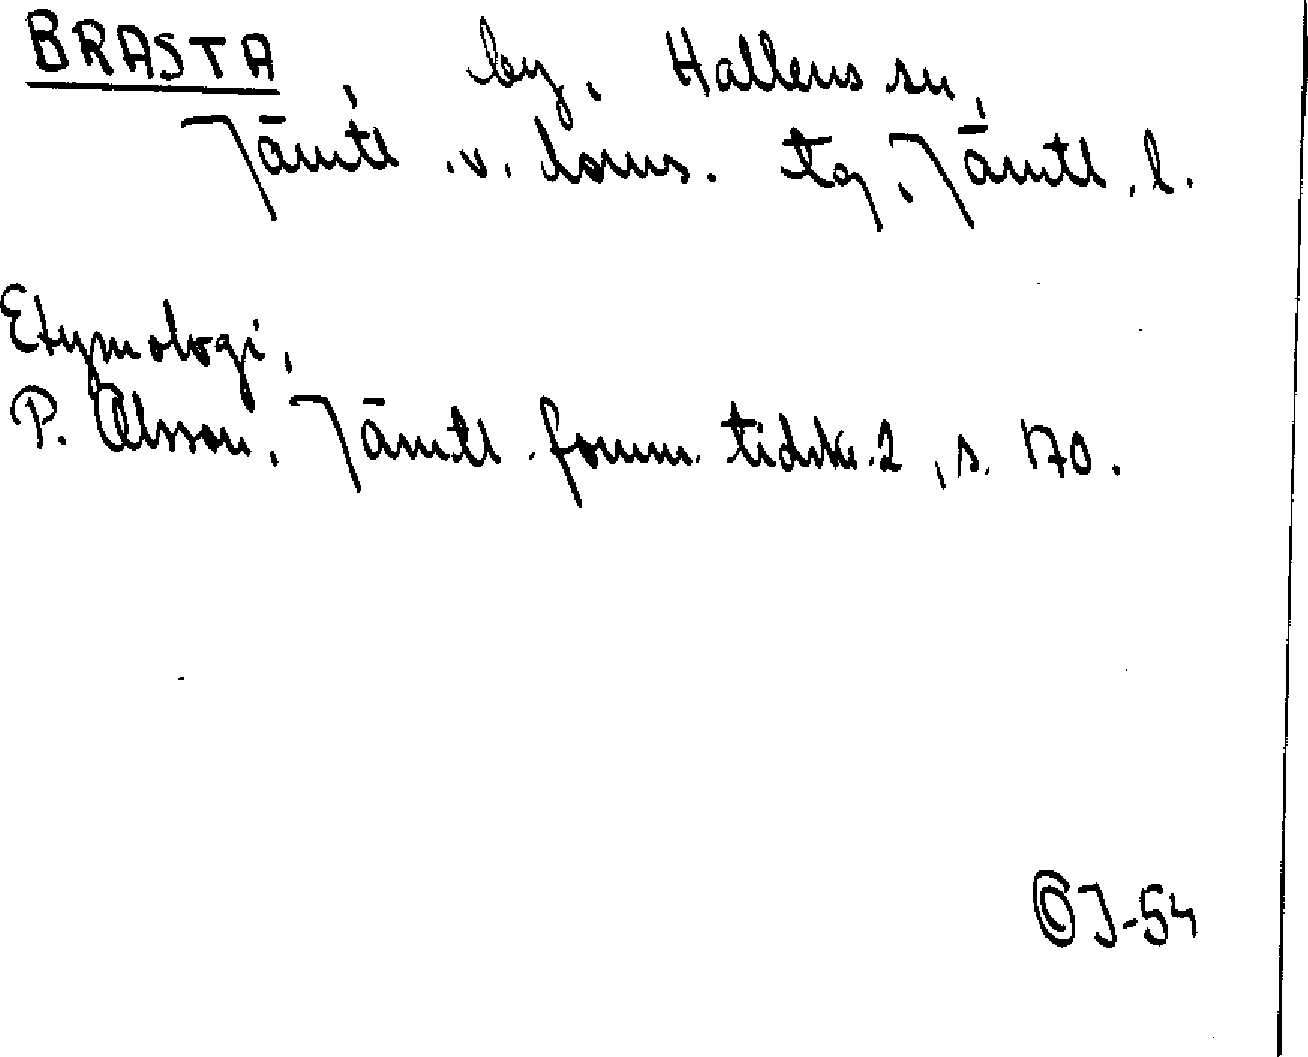 BRASTA, by, Hallens sn,
Jämtl. v. doms. tg, Jämtl. l.
Etymologi,
P. Olsson, Jämtl. fornm. tidskr. 2, s. 170.
OJ-54